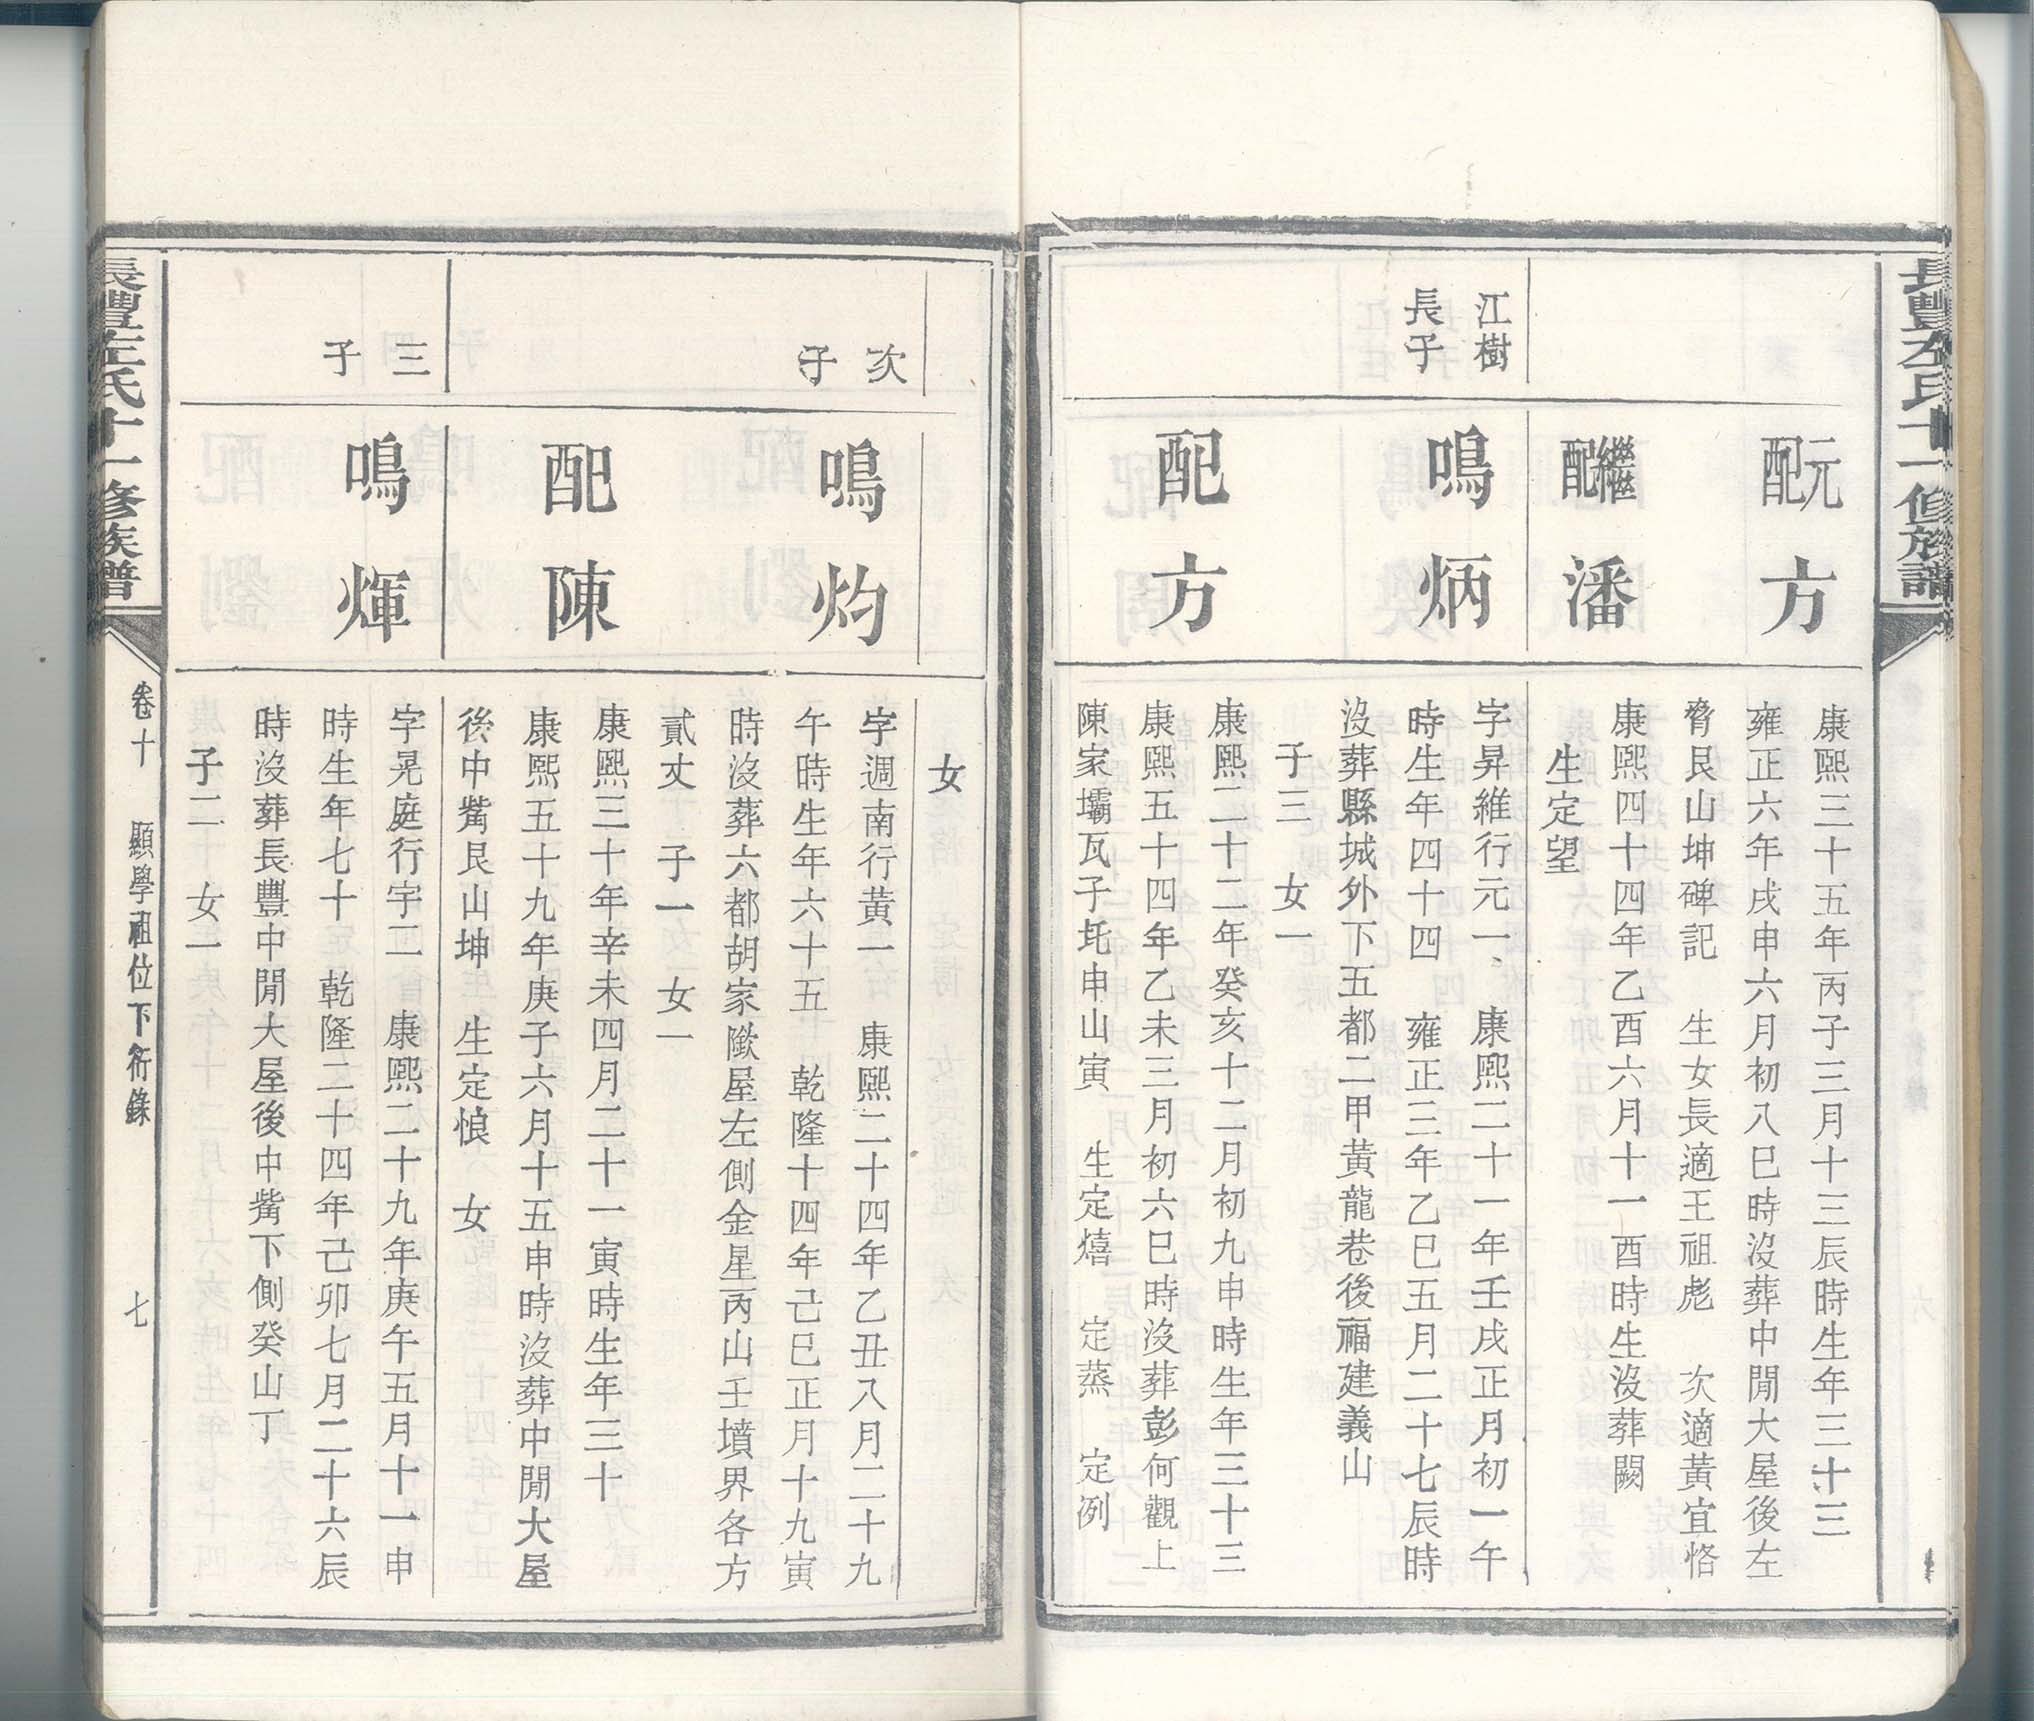 長豐左氏十一修族譜
元配
方
康熙三十五年丙子三月十三辰時生年三十三
雍正六年戌申六月初八巳時沒葬中閒大屋後左
脅艮山坤碑記 生女長適王祖彪 次適黃宜恪
繼配
潘
康熙四十四年乙酉六月十一酉時生沒葬闕
生定望
江樹
長子
鳴炳
字昇維行元一、 康熙二十一年壬戌正月初一午
時生年四十四 雍正三年乙巳五月二十七辰時
沒葬縣城外下五都二甲黃龍巷後福建義山
子三 女一
配方
康熙二十二年癸亥十二月初九申時生年三十三
康熙五十四年乙未三月初六巳時沒葬彭何觀上
陳家壩瓦子圫申山寅 生定熺 定蒸 定冽
女
次子
鳴灼
字週南行黃一 康熙二十四年乙丑八月二十九
午時生年六十五 乾隆十四年己巳正月十九寅
時沒葬六都胡家隞屋左側金星丙山壬墳界各方
貳丈 子一 女一
配陳
康熙三十年辛未四月二十一寅時生年三十
康熙五十九年庚子六月十五申時沒葬中閒大屋
後中觜艮山坤 生定悢 女
三子
鳴煇
字晃庭行宇二 康熙二十九年庚午五月十一申
時生年七十 乾隆二十四年己卯七月二十六辰
時沒葬長豐中閒大屋後中觜下側癸山丁
子二 女一
長豐左氏十一修族譜
卷十 顯學祖位下衍錄 七